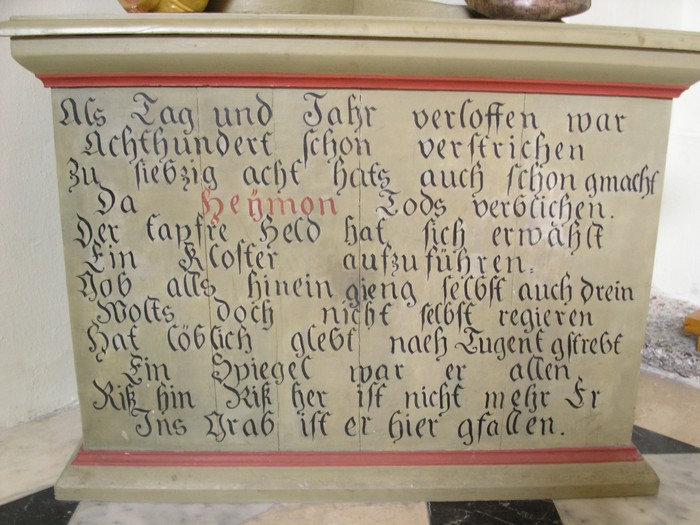 Als Tag und Jahr verloffen war
Achthundert schon verstrichen
Zu siebzig acht hats auch schon gmacht
Da Heÿmon Tods verblichen.
Der tapfre Held hat sich erwählt
Ein Kloster aufzuführen.
Gob alls hinein gieng selbst auch drein
Wolts doch nicht selbst regieren
Hat löblich glebt nach Tugent gstrebt
Ein Spiegel war er allen
Riß hin Riß her ist nicht mehr Er
Ins Grab ist er hier gfallen.